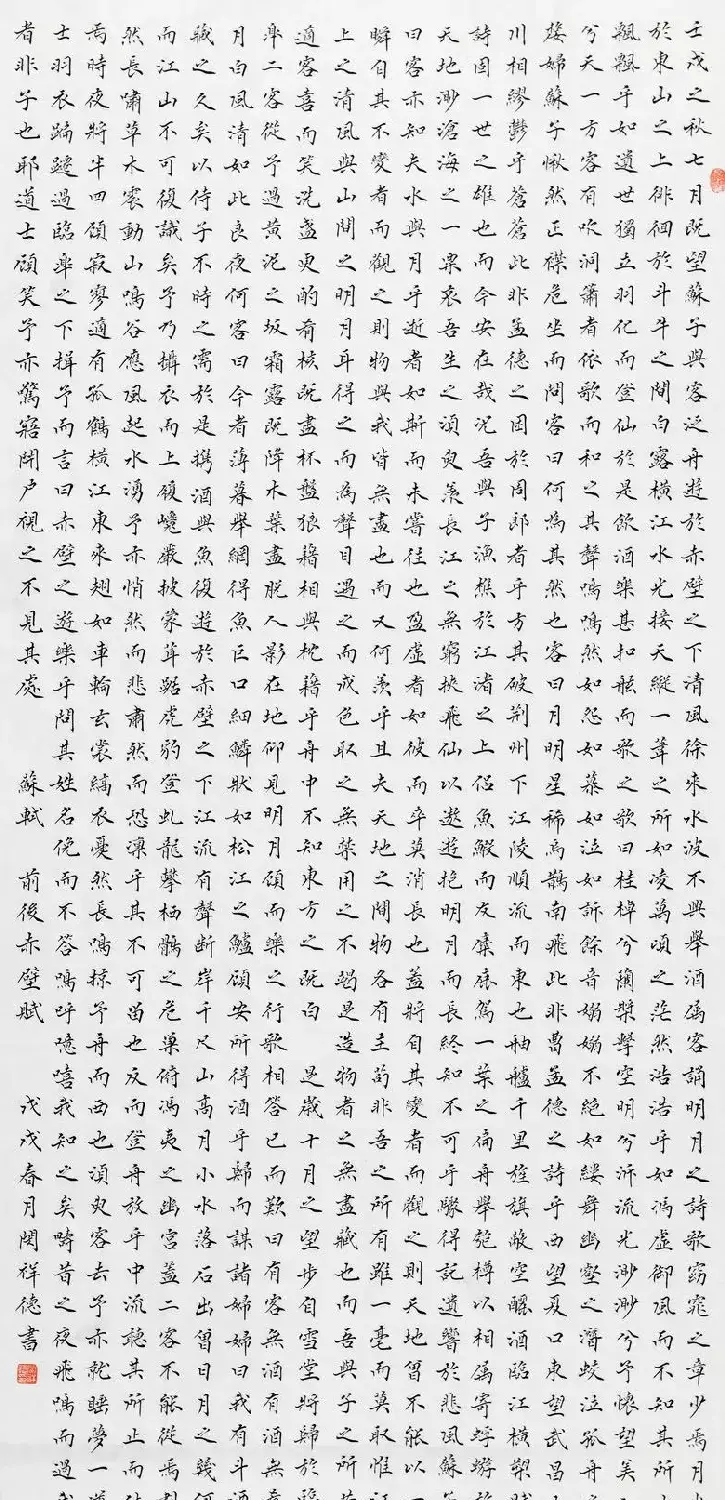 壬戌之秋七月既望蘇子與客泛舟遊於赤壁之下清風徐來水波不興舉酒屬客誦明月之詩歌窈窕之章少焉月
於東山之上徘徊於斗牛之間白露橫江水光接天縱一葦之所如凌萬頃之茫然浩浩乎如馮虛御風而不知其所
飄飄乎如遺世獨立羽化而登仙於是飲酒樂甚扣舷而歌之歌曰桂棹兮蘭槳擊空明兮泝流光渺渺兮予懷望美
兮天一方客有吹洞簫者依歌而和之其聲嗚嗚然如怨如慕如泣如訴餘音嫋嫋不絕如縷舞幽壑之潛蛟泣孤舟
嫠婦蘇子愀然正襟危坐而問客曰何為其然也客曰月明星稀烏鵲南飛此非曹孟德之詩乎西望夏口東望武昌
川相繆鬱乎蒼蒼此非孟德之困於周郎者乎方其破荊州下江陵順流而東也舳艫千里旌旗蔽空釃酒臨江橫槊
詩固一世之雄也而今安在哉況吾與子漁樵於江渚之上侶魚鰕而友麋鹿駕一葉之扁舟舉匏樽以相屬寄蜉蝣
天地渺滄海之一粟哀吾生之須臾羨長江之無窮挾飛仙以遨遊抱明月而長終知不可乎驟得託遺響於悲風蘇
曰客亦知夫水與月乎逝者如斯而未嘗往也盈虛者如彼而卒莫消長也蓋將自其變者而觀之則天地曾不能以
瞬自其不變者而觀之則物與我皆無盡也而又何羨乎且夫天地之間物各有主苟非吾之所有雖一毫而莫取惟江
上之清風與山間之明月耳得之而為聲目遇之而成色取之無禁用之不竭是造物者之無盡藏也而吾與子之所
適客喜而笑洗盞更酌肴核既盡杯盤狼籍相與枕藉乎舟中不知東方之既白 是歲十月之望步自雪堂將歸於臨
皋二客從予過黃泥之坂霜露既降木葉盡脫人影在地仰見明月顧而樂之行歌相答已而歎曰有客無酒有酒無
月白風清如此良夜何客曰今者薄暮舉網得魚巨口細鱗狀如松江之鱸顧安所得酒乎歸而謀諸婦婦曰我有斗酒
藏之久矣以待子不時之需於是攜酒與魚復遊於赤壁之下江流有聲斷岸千尺山高月小水落石出曾日月之幾何
而江山不可復識矣予乃攝衣而上履巉巖披蒙茸踞虎豹登虬龍攀栖鶻之危巢俯馮夷之幽宮蓋二客不能從焉劃
然長嘯草木震動山鳴谷應風起水湧予亦悄然而悲肅然而恐凜乎其不可留也反而登舟放乎中流聽其所止而
焉時夜將半四顧寂寥適有孤鶴橫江東來翅如車輪玄裳縞衣戛然長鳴掠予舟而西也須臾客去予亦就睡夢一道
士羽衣蹁躚過臨皋之下揖予而言曰赤壁之遊樂乎問其姓名俛而不答嗚呼噫嘻我知之矣疇昔之夜飛鳴而過我
者非子也耶道士顧笑予亦驚寤開戶視之不見其處 蘇軾 前後赤壁賦 戊戌春月閔祥德書